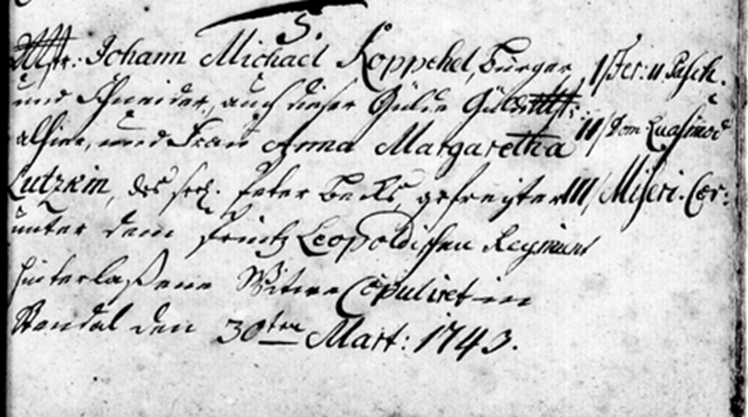 5.
Mstr: Johann Michael Koppehel, bürger
und Schneider, auch dieser Gülde Güldemstr:
alhier, und Frau Anna Margaretha
Lutzkin, des sel. Peter Becks, gefreyter
unter dem Printz Leopoldischen Regiment
hinterlaßene Witwe Copuliret in
Stendal den 30ten Mart: 1743.
I/ Fer: II Pasch.
II/ Dom Quasimod
III/ Miseri. Cor: